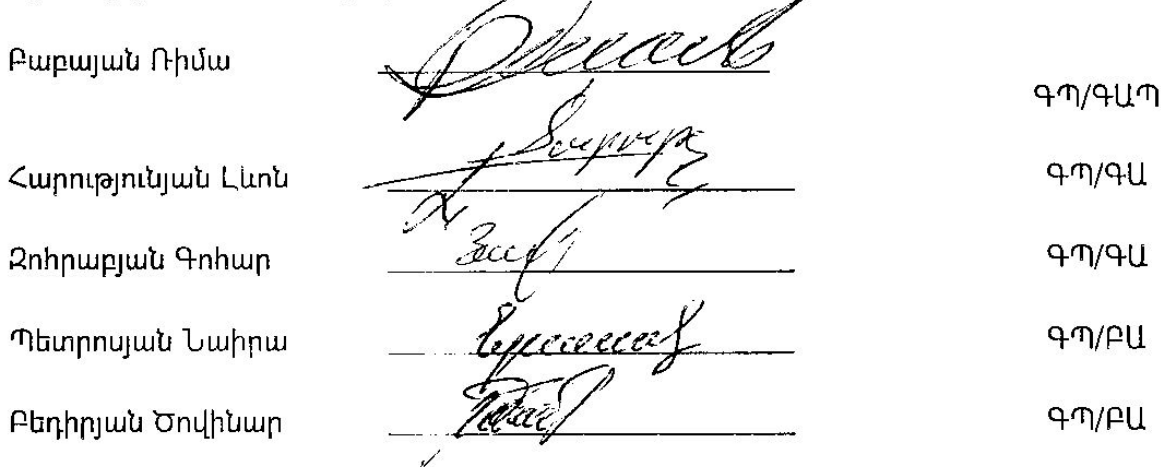 Բաբայան Ռիմա
ԳՊ/ԳԱՊ
Հարությունյան Լևոն ԳՊ/ԳԱ
Զոհրաբյան Գոհար ԳՊ/ԳԱ
Պետրոսյան Նաիրա ԳՊ/ԲԱ
Բեդիրյան Ծովինար ԳՊ/ԲԱ